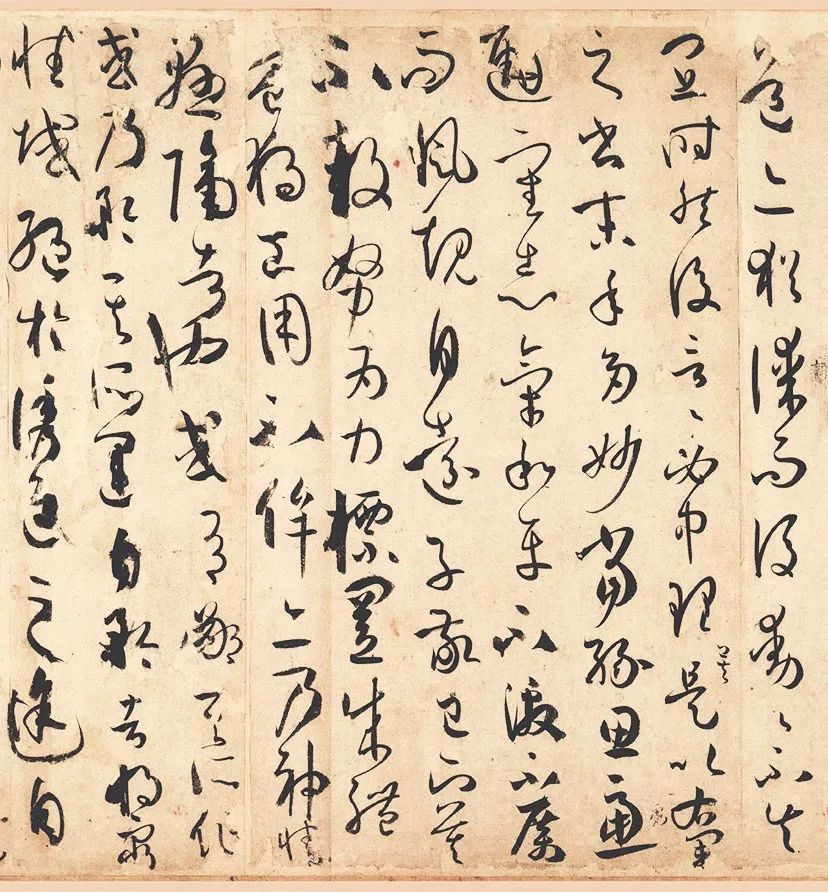 道亦猶謀而後動〻不失
宜時然後言〻必中理矣是以右軍
之書末年多妙當緣思慮
通審志氣和平不激不厲
而風規自遠子敬已下莫
不鼓努為力標置成體
豈獨工用不侔亦乃神情
懸隔者也或有鄙其所作
或乃矜其所運自矜者將窮
性域絕於誘進之途自